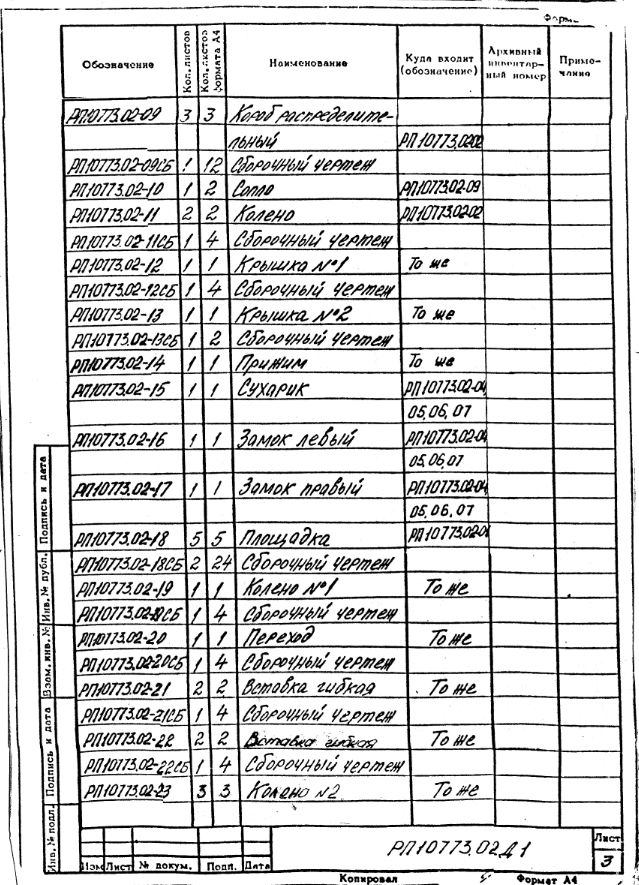 Обозначение Кол. листов Кол. листов формата А4 Наименование Куда входит (обозначение) Архивный инвентар-ный номер Приме-чания
РП10773.02-09 3 3 Короб распределите-
льный РП10773.0202
РП10773.02-09СБ 1 12 Сборочный чертеж
РП10773.02-10 1 2 Сопло РП10773.02-09
РП10773.02-11 2 2 Колено РП10773.02-02
РП10773.02-11СБ 1 4 Сборочный чертеж
РП10773.02-12 1 1 Крышка №1 То же
РП10773.02-12СБ 1 4 Сборочный чертеж
РП10773.02-13 1 1 Крышка №2 То же
РП10773.02-13СБ 1 2 Сборочный чертеж
РП10773.02-14 1 1 Прижим То же
РП10773.02-15 1 1 Сухарик РП10773.02-04,
05,06,07
РП10773.02-16 1 1 Замок левый РП10773.02-04,
05,06,07
РП10773.02-17 1 1 Замок правый РП10773.02-04
05,06,07
РП10773.02-18 5 5 Площадка
РП10773.02-18СБ 2 24 Сборочный чертеж
РП10773.02-19 1 1 Колено №1 То же
РП10773.02-19СБ 1 4 Сборочный чертеж
РП10773.02-20 1 1 Переход То же
РП10773.02-20СБ 1 4 Сборочный чертеж
РП10773.02-21 2 2 Вставка гибкая То же
РП10773.02-21СБ 1 4 Сборочный чертеж
РП10773.02-22 2 2 Вставка гибкая То же
РП10773.02-22СБ 1 4 Сборочный чертеж
РП10773.02-23 3 3 Колено №2 То же
Подпись и дата
Инв. № дубл.
Взам. инв. №
Подпись и дата
Инв. № подл.
РП10773.02Д1
Лист
3
Изм Лист № докум. Подп. Дата
Копировал Формат А4